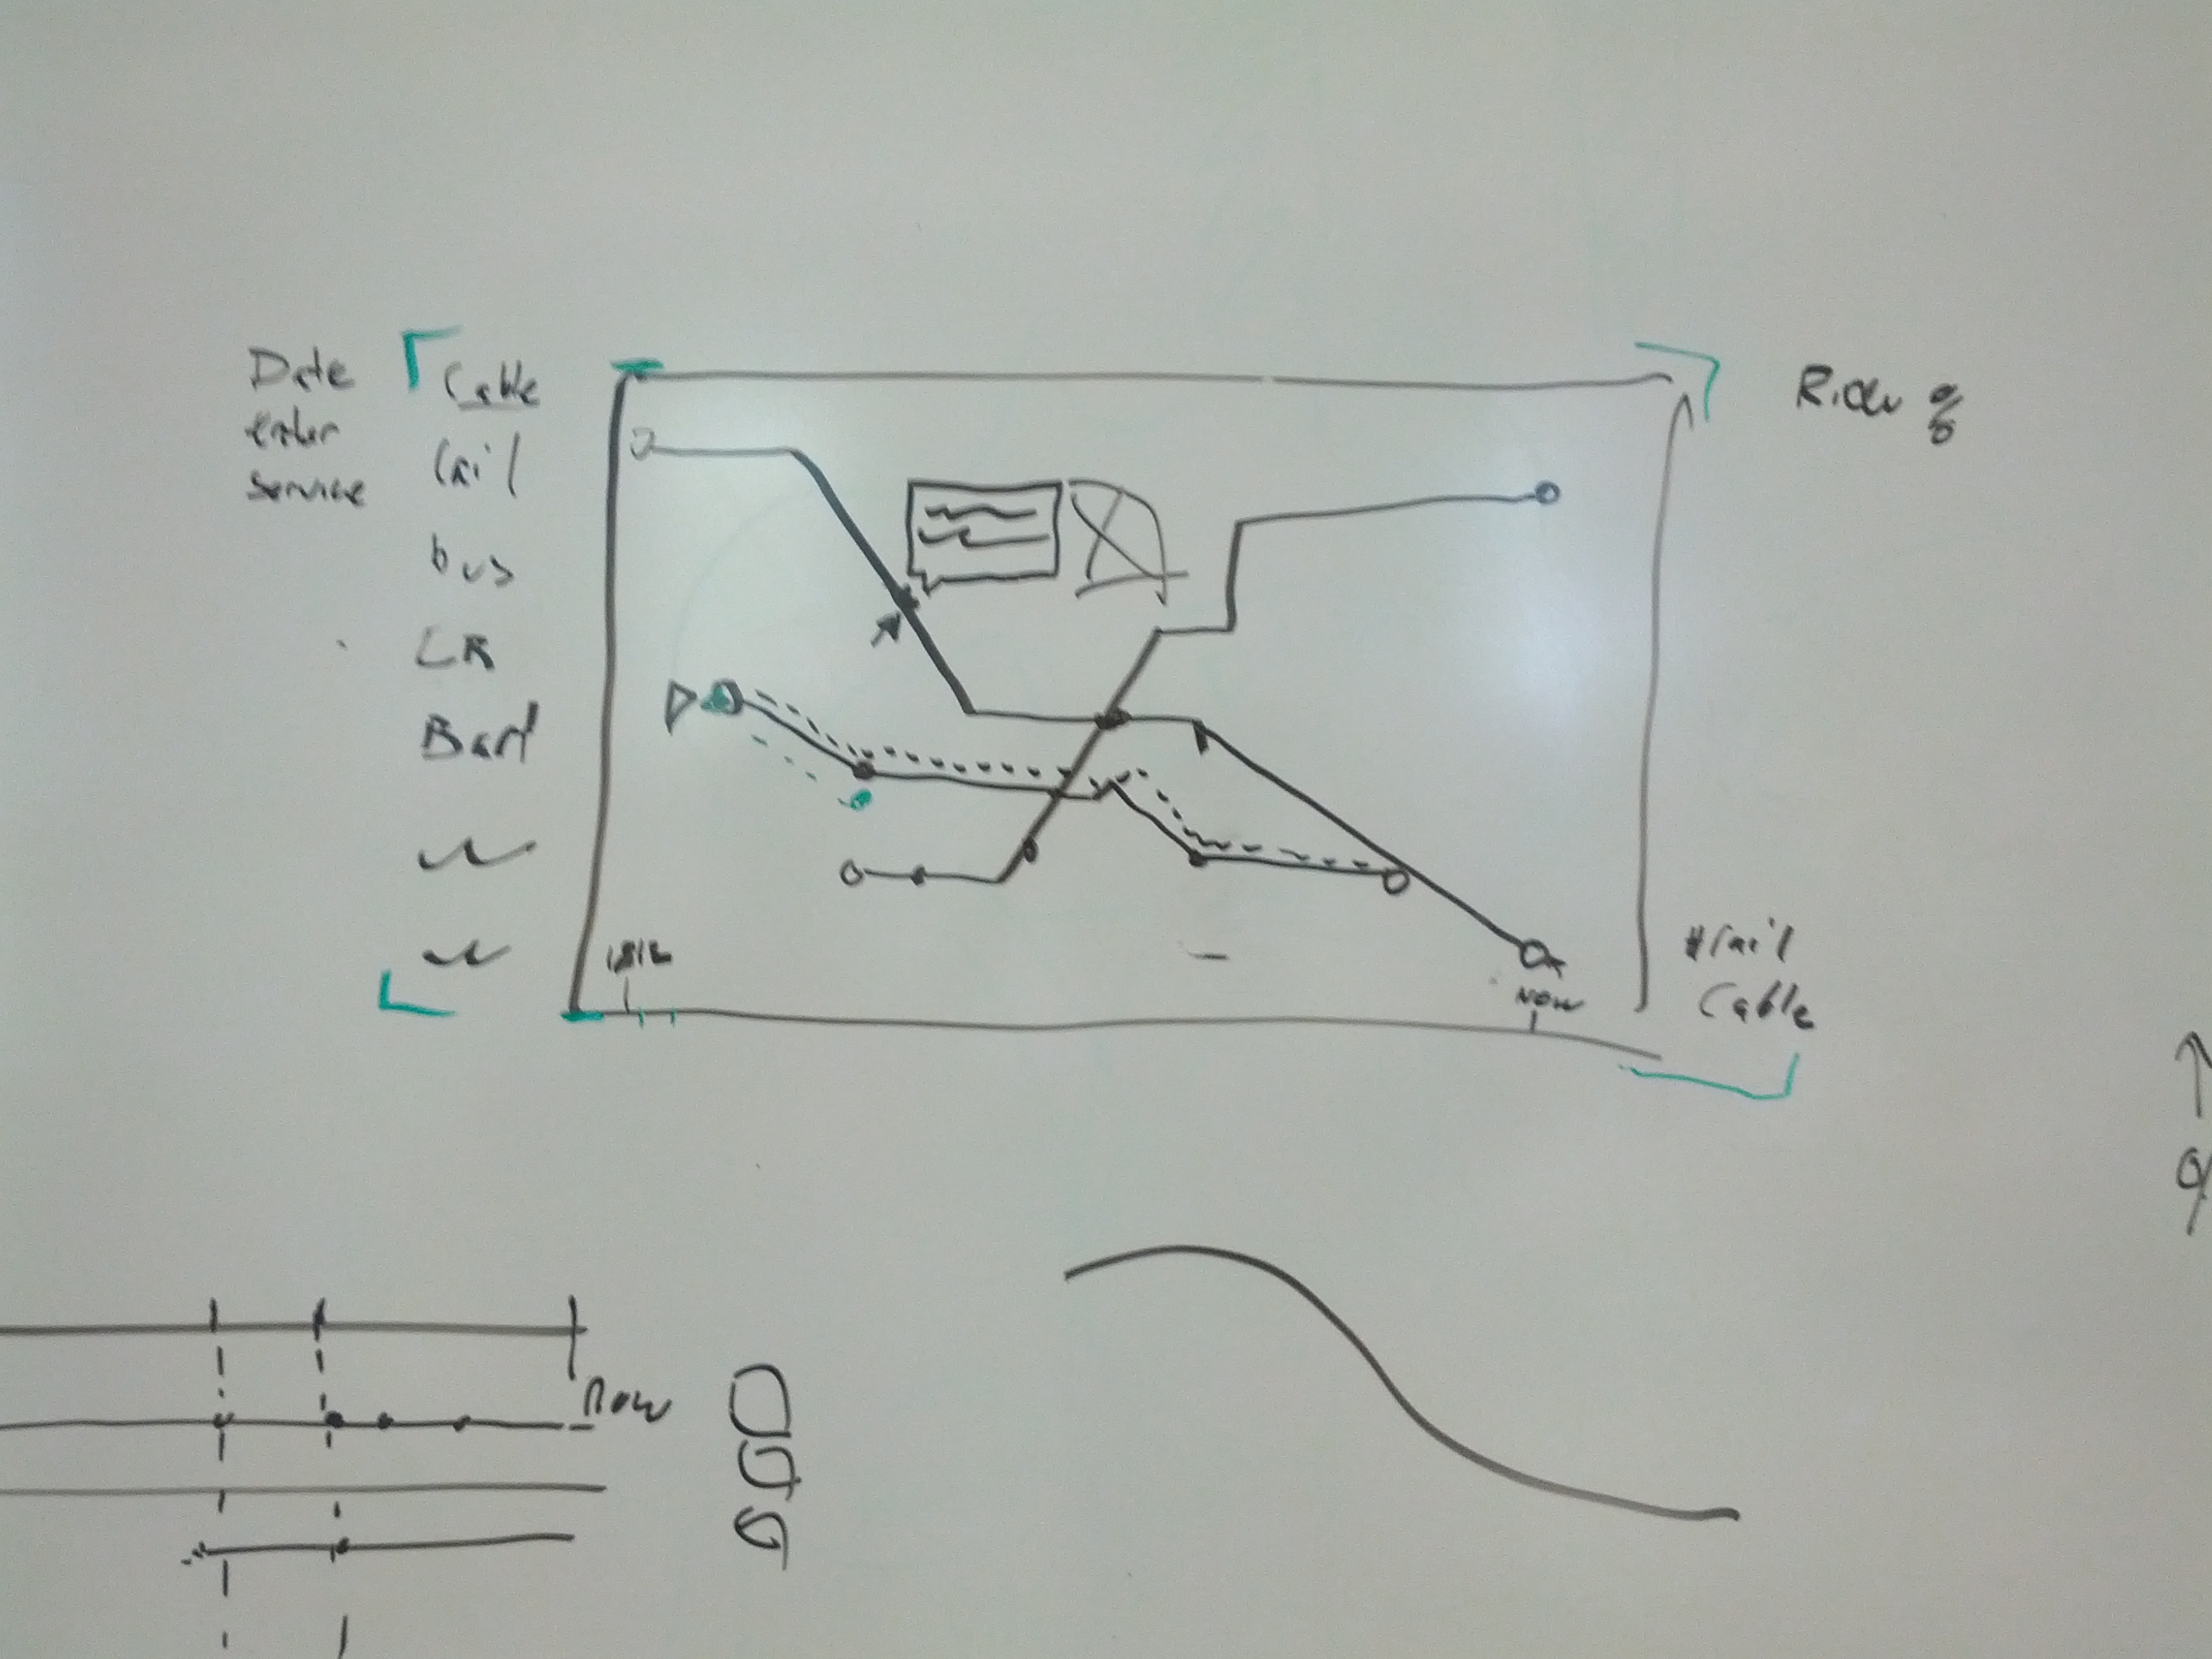 Date
enter
service
Cable
rail
bus
LR
Bart
1912
now
Rider %
# rail
Cable
now